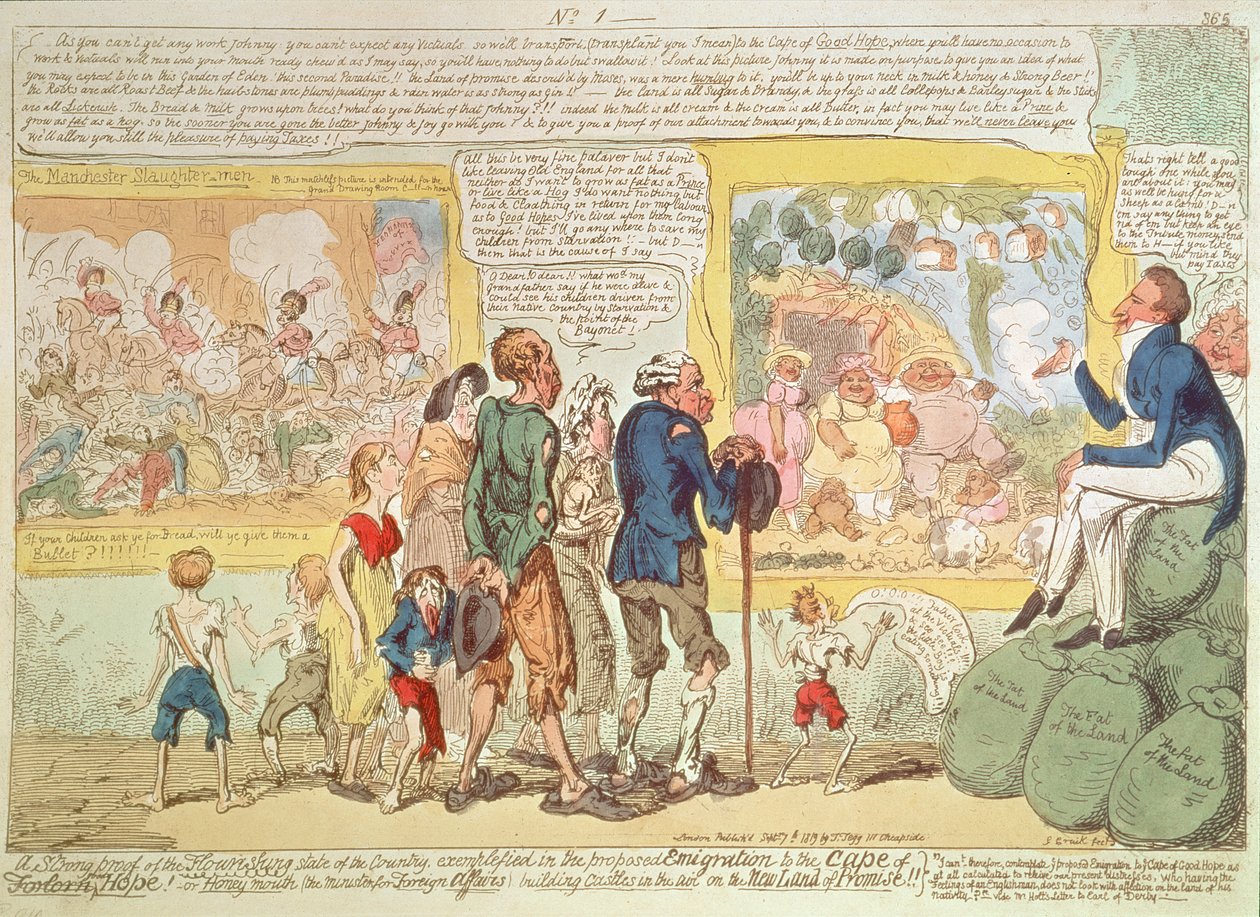 No. 1 —
865
As you can't get any work Johnny: you can't expect any Victuals. so we'll transport, (transplant you I mean) to the Cape of Good Hope, where you'll have no occasion to
work & Victuals will run into your mouth ready chew'd as I may say, so you'll have nothing to do but swallow it! Look at this picture Johnny it is made on purpose to give you an idea of what
you may expect to be in this Garden of Eden. this second Paradise!! the Land of promise describ'd by Moses, was a mere humbug to it. you'll be up to your neck in milk & honey & Strong Beer!'
the Rocks are all Roast Beef & the hail-stones are plumb puddings & rain water is as strong as Gin!! — the land is all Sugar & Brandy, & the grass is all Lollepops & Barley sugar & the Sticks
are all Lickerish. The Bread & Milk grows upon trees! what do you think of that Johnny?!!! indeed the Milk is all cream & the Cream is all Butter, in fact you may live like a Prince &
grow as fat as a hog, so the sooner you are gone the better Johnny & Joy go with you! & to give you a proof of our attachment towards you, & to convince you, that we'll never leave you
we'll allow you still the pleasure of paying Taxes!!
The Manchester Slaughter=men
NB This matchless picture is intended for the
Grand Drawing Room C—ll—n house
If your Children ask ye for Bread, will ye give them a
Bullet?!!!!!!—
All this be very fine palaver but I don't
like leaving Old England for all that
neither do I want to grow as fat as a Prince
or live like a Hog I do want nothing but
food & Cloathing in return for my labour
as to Good Hopes I've lived upon them long
enough! but I'll go any where to save my
Children from Starvation!! — but D—n
them that is the cause of it I say —
O Dear! O dear!! what wod my
Grandfather say if he were alive &
could see his children driven from
their Native Country by Starvation &
the Point of the
Bayonet!
Thats right tell a good
tough one while you
are about it: you may
as well be hung for a
Sheep as a Lamb! D—n
'em say any thing to get
rid of em but keep an eye
to the Tribute money, send
them to H— if you like
but mind they
pay Taxes
O! O! O!!
at the
The Fat
of the
Land
The Fat
of the Land
The Fat
of the Land
The Fat
of the Land
London Publish'd Septr 7th 1819 by T. Tegg 111 Cheapside
G Cruik fect
A Strong proof of the Flourishing state of the Country. exemplefied in the proposed Emigration to the Cape of
Forlorn Hope! — or Honey mouth (the minister for Foreign Affairs) building Castles in the air on the New Land of Promise!!
"I can't therefore, contemplate ye proposed Emigration to ye Cape of Good Hope as
at all calculated to relieve our present distresses. Who having the
Feelings of an Englishman, does not look with affection on the land of his
nativity?" vide Mr Holts Letter to Earl of Derby —